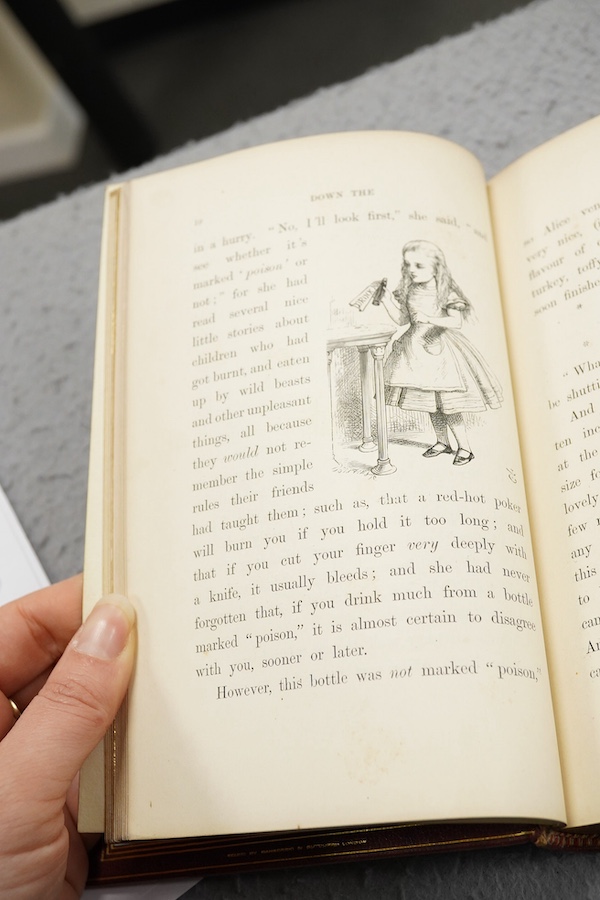 DOWN THE
in a hurry. "No, I'll look first," she said, "and
see whether it's
marked 'poison' or
not;" for she had
read several nice
little stories about
children who had
got burnt, and eaten
up by wild beasts
and other unpleasant
things, all because
they would not re-
member the simple
rules their friends
had taught them; such as, that a red-hot poker
will burn you if you hold it too long; and
that if you cut your finger very deeply with
a knife, it usually bleeds; and she had never
forgotten that, if you drink much from a bottle
marked "poison," it is almost certain to disagree
with you, sooner or later.
However, this bottle was not marked "poison,"
so Alice
very nice,
flavour of
turkey, toffy
soon finished
be
And
ten
at the
size
lovely
few
any
this
to